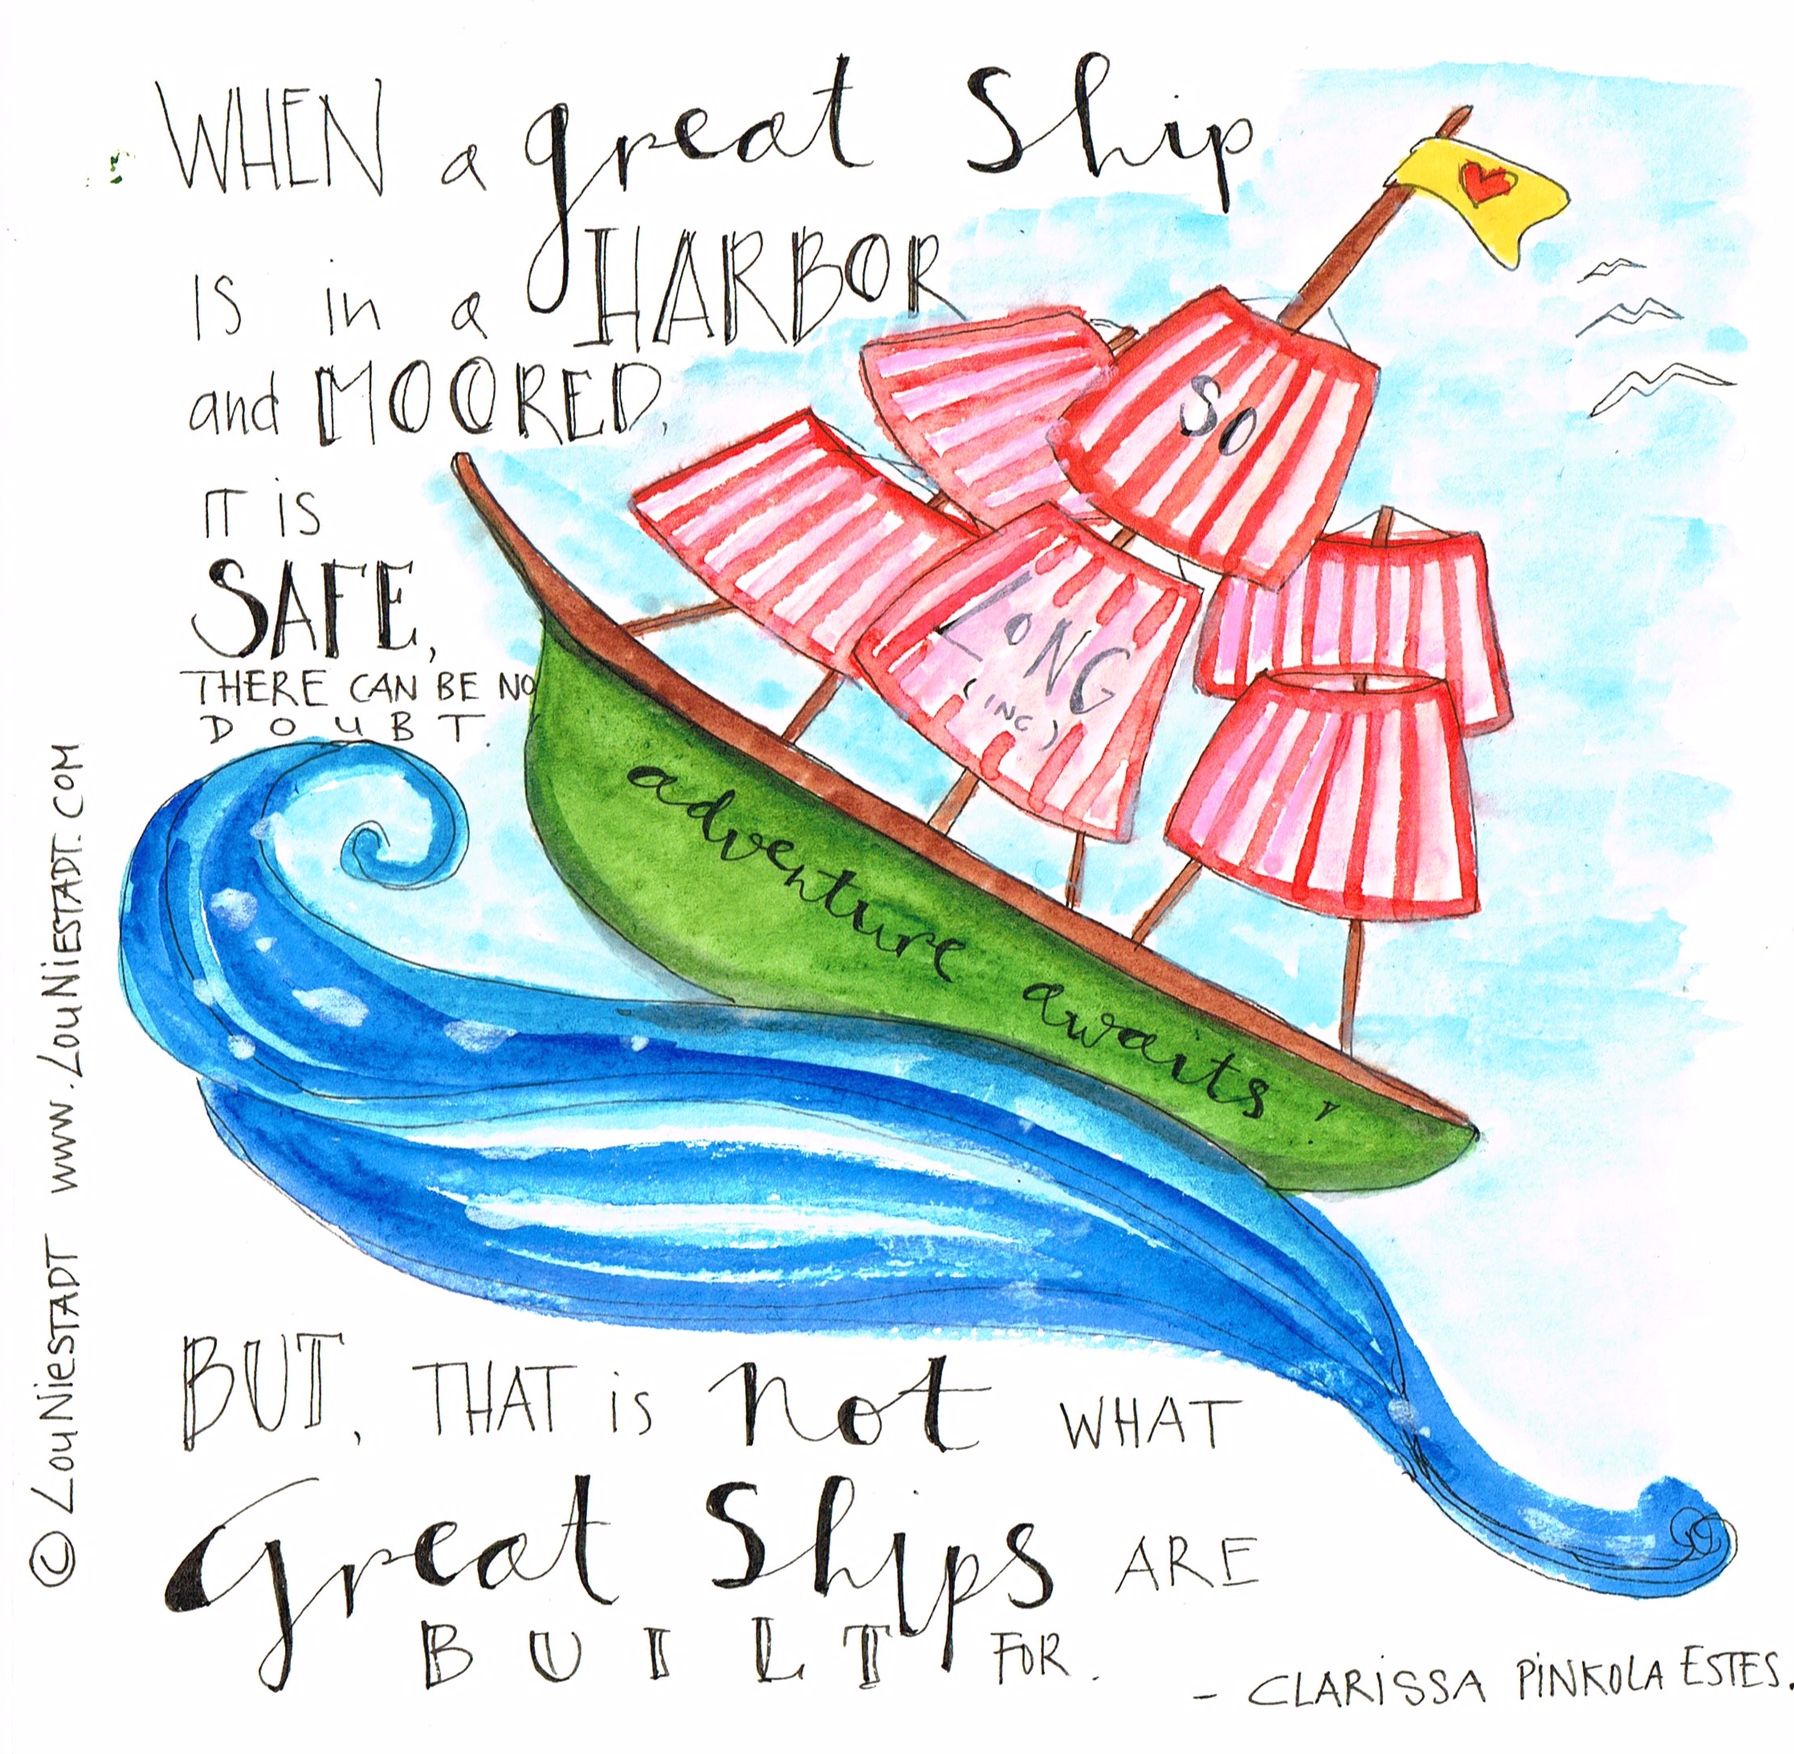 WHEN a great Ship
IS in a HARBOR
and MOORED,
IT IS
SAFE,
THERE CAN BE NO
DOUBT.
SO
LONG
(ING)
adventure awaits!
BUT, THAT is not WHAT
Great Ships ARE
BUILT FOR.
- CLARISSA PINKOLA ESTES.
© LOUNIESTADT www.LOUNIESTADT.COM